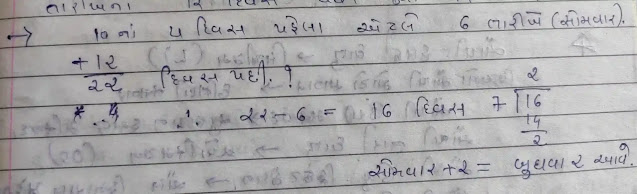 તારીખના 12 દિવસ
→ 10 નાં 4 દિવસ પહેલા એટલે 6 તારીખે (સોમવાર).
+12
22 દિવસ પછી. ?
∴ 22 - 6 = 16 દિવસ 7 | 16
2
14
2
સોમવાર + 2 = બુધવાર આવે.